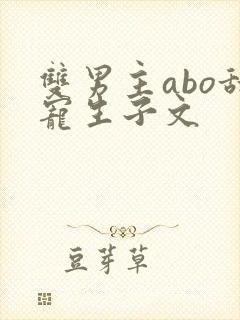 雙男主abo甜
寵生子文
豆芽草